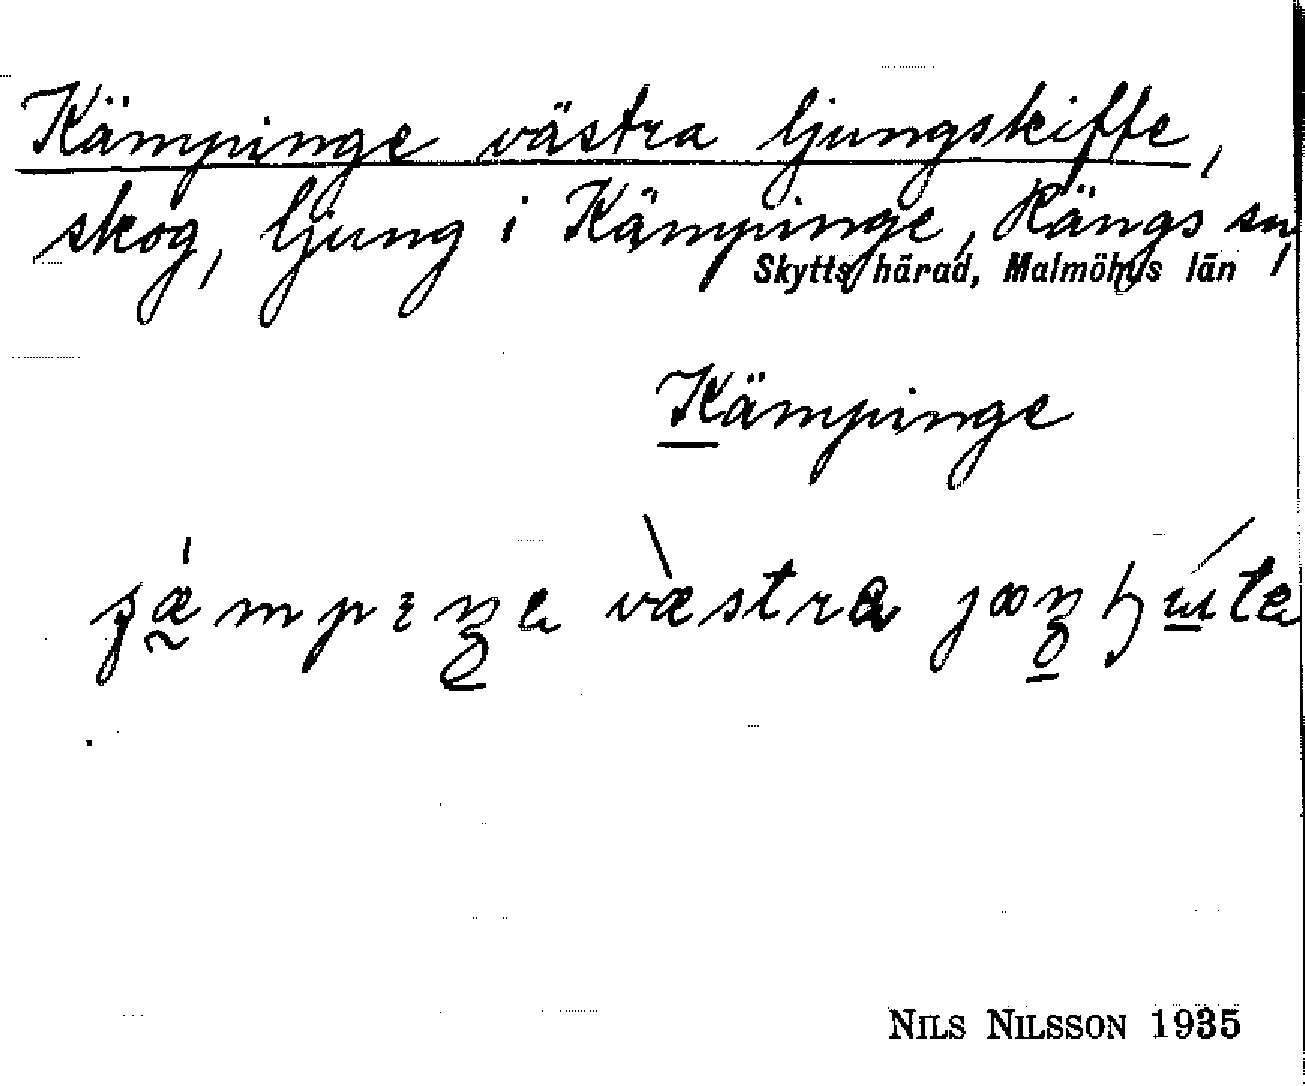 Kämpinge västra ljungskifte,
skog, ljung i Kämpinge, Rängs sn,
Skytts härad, Malmöhus län
Kämpinge
västra
NILS NILSSON 1935